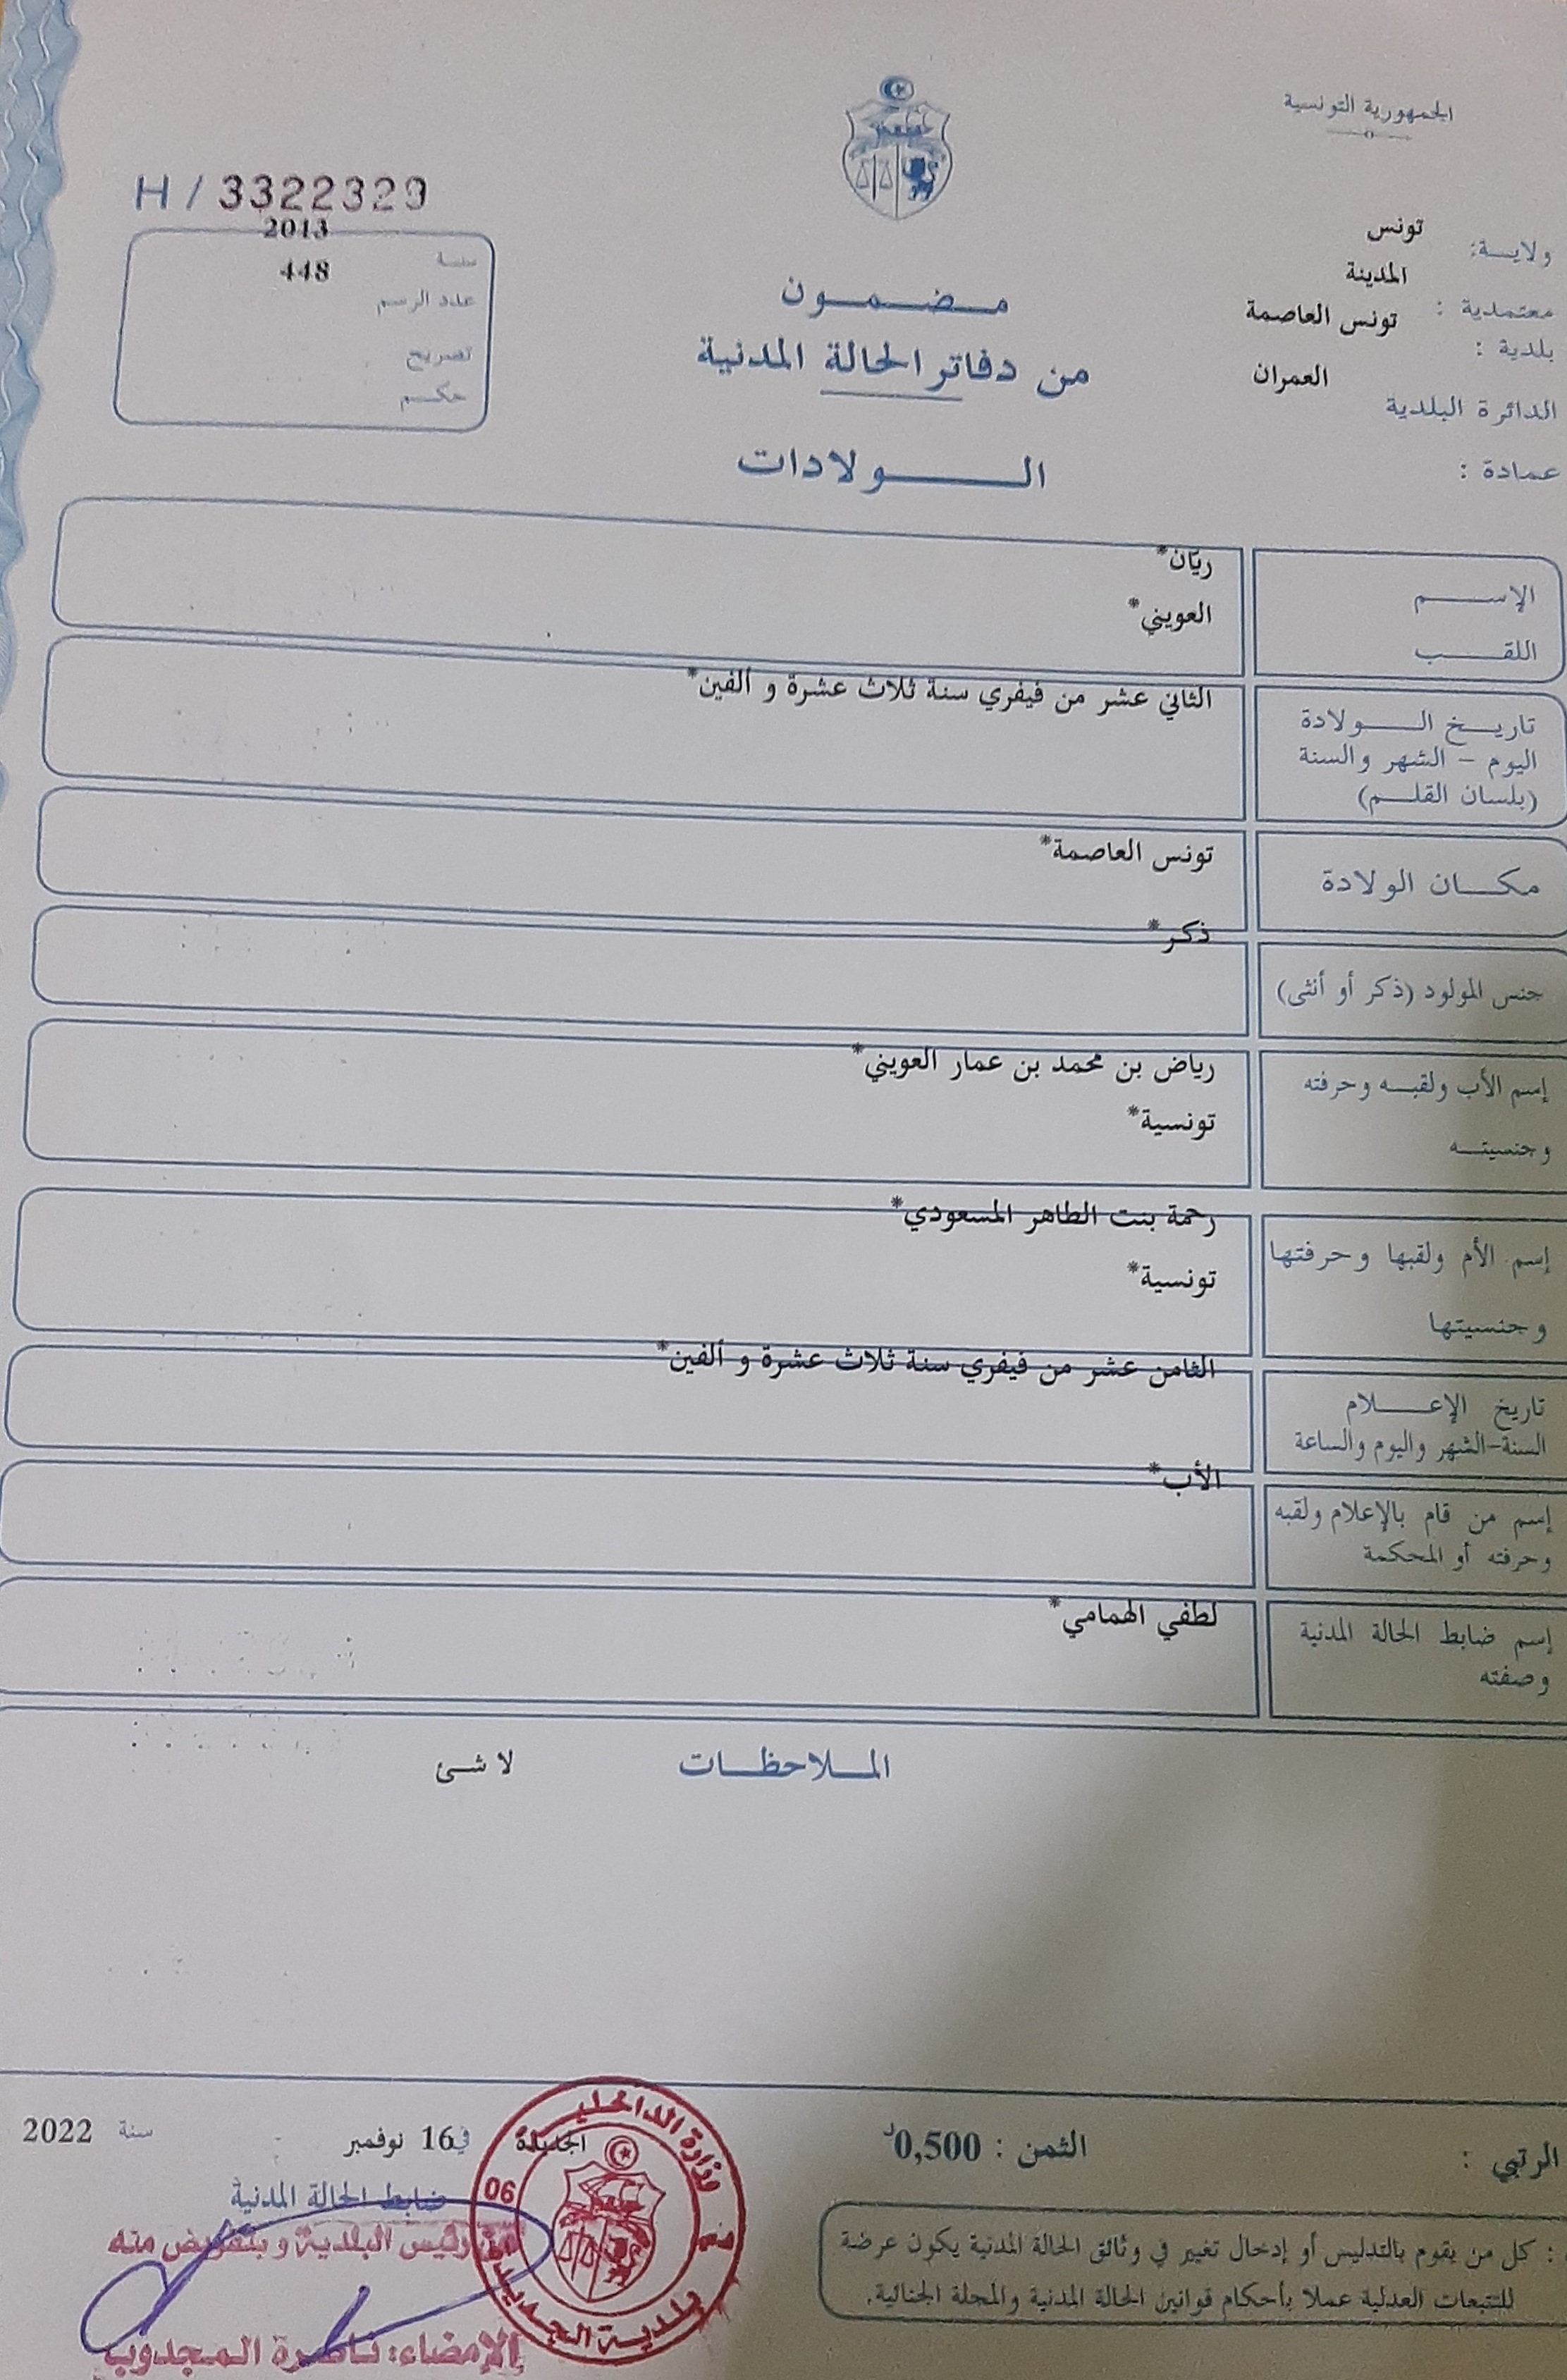 الجمهورية التونسية
ولايـــة: تونس
المدينة
معتمدية :
تونس العاصمة
بلدية :
العمران
الدائرة البلدية
عمادة :
H / 3322329
2013
سنـة
448
عدد الرسم
تصريح
حكـم
مـضـمـون
من دفاتر الحالة المدنية
الــولادات
الإســـم
ريّان*
اللقـــب
العويني*
تاريــخ الــولادة
اليوم – الشهر والسنة
(بلسان القلــم)
الثاني عشر من فيفري سنة ثلاث عشرة و ألفين*
مكــان الولادة
تونس العاصمة*
جنس المولود (ذكر أو أنثى)
ذكر*
إسم الأب ولقبــه وحرفته
وجنسيتــه
رياض بن محمد بن عمار العويني*
تونسية*
إسم الأم ولقبها وحرفتها
وجنسيتها
رحمة بنت الطاهر المسعودي*
تونسية*
تاريخ الإعـــلام
السنة-الشهر واليوم والساعة
الثامن عشر من فيفري سنة ثلاث عشرة و ألفين*
إسم من قام بالإعلام ولقبه
وحرفته أو المحكمة
الأب*
إسم ضابط الحالة المدنية
وصفته
لطفي الهمامي*
المــلاحظــات
لا شئ
الرتبي :
الثمن : 0,500د
الجديدة في 16 نوفمبر سنة 2022
ضابط الحالة المدنية
عن رئيس البلدية و بتفويض منه
الإمضاء: ناظرة المجدوب
وزارة الداخلية
06
بلدية الجديدة
: كل من يقوم بالتدليس أو إدخال تغيير في وثائق الحالة المدنية يكون عرضة
للتتبعات العدلية عملا بأحكام قوانين الحالة المدنية والمجلة الجنائية.